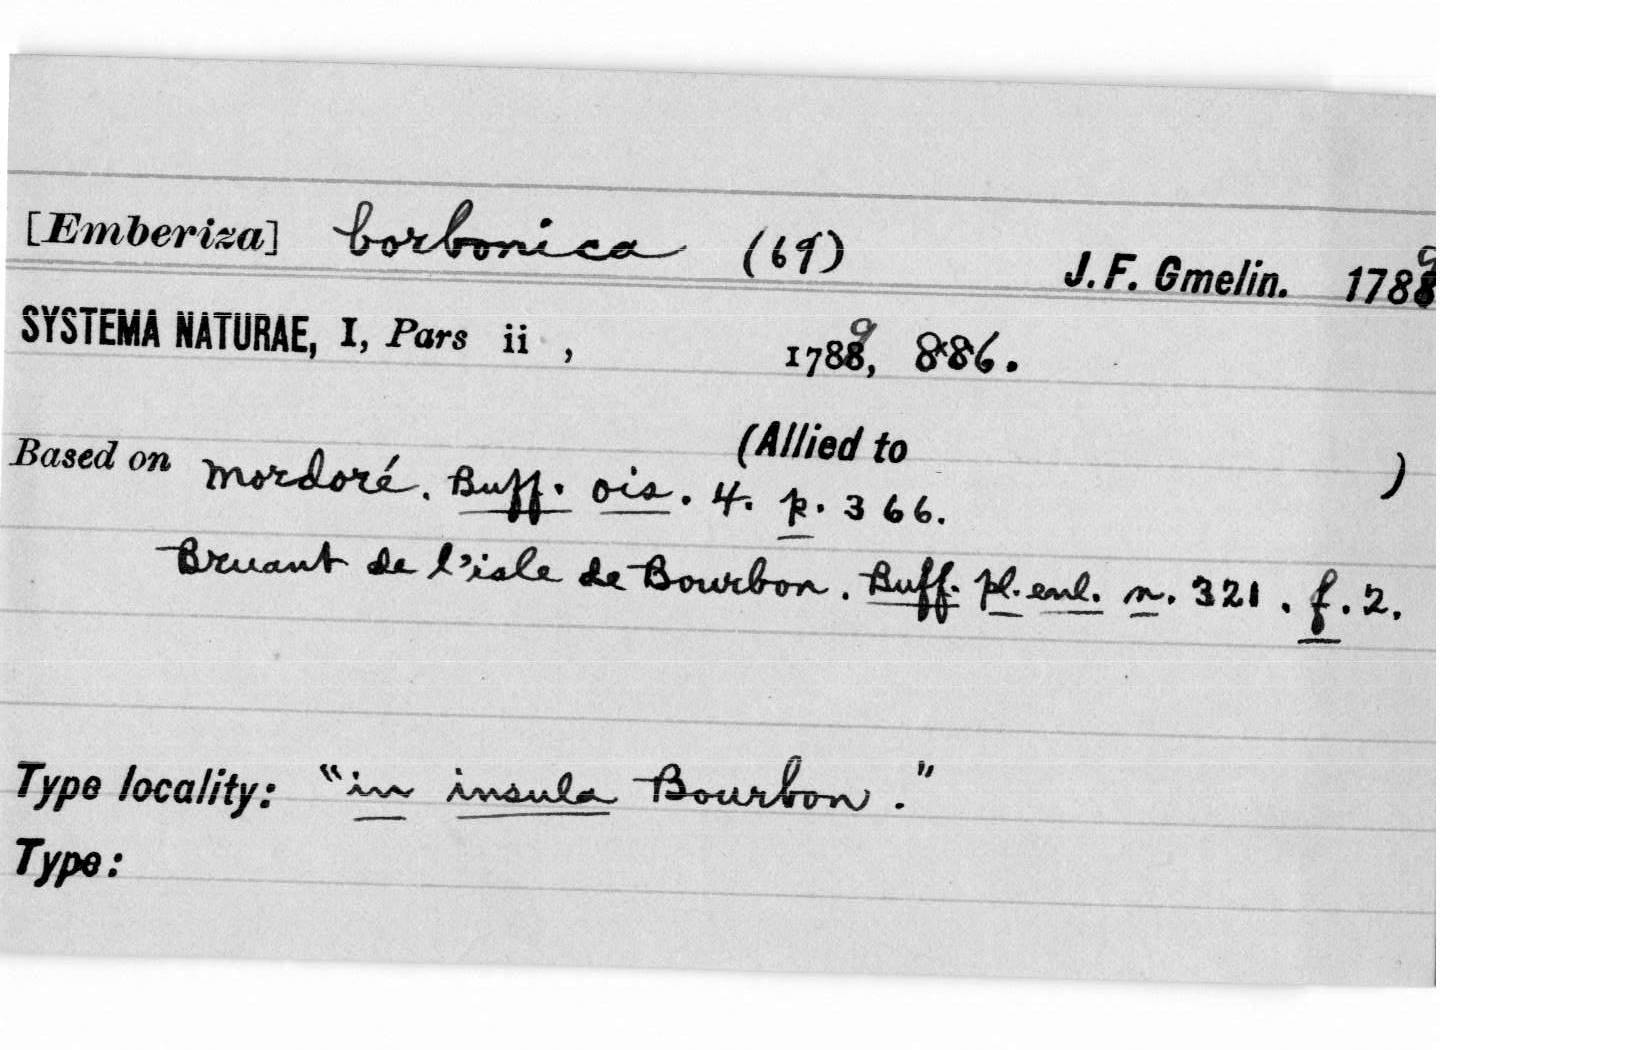 [Emberiza] borbonica (69) J. F. Gmelin. 1789
SYSTEMA NATURAE, I, Pars ii , 1789, 886.
Based on (Allied to )
Mordoré. Buff. ois. 4. p. 366.
Bruant de l'isle de Bourbon. Buff. pl. enl. n. 321. f. 2.
Type locality: "in insula Bourbon."
Type: